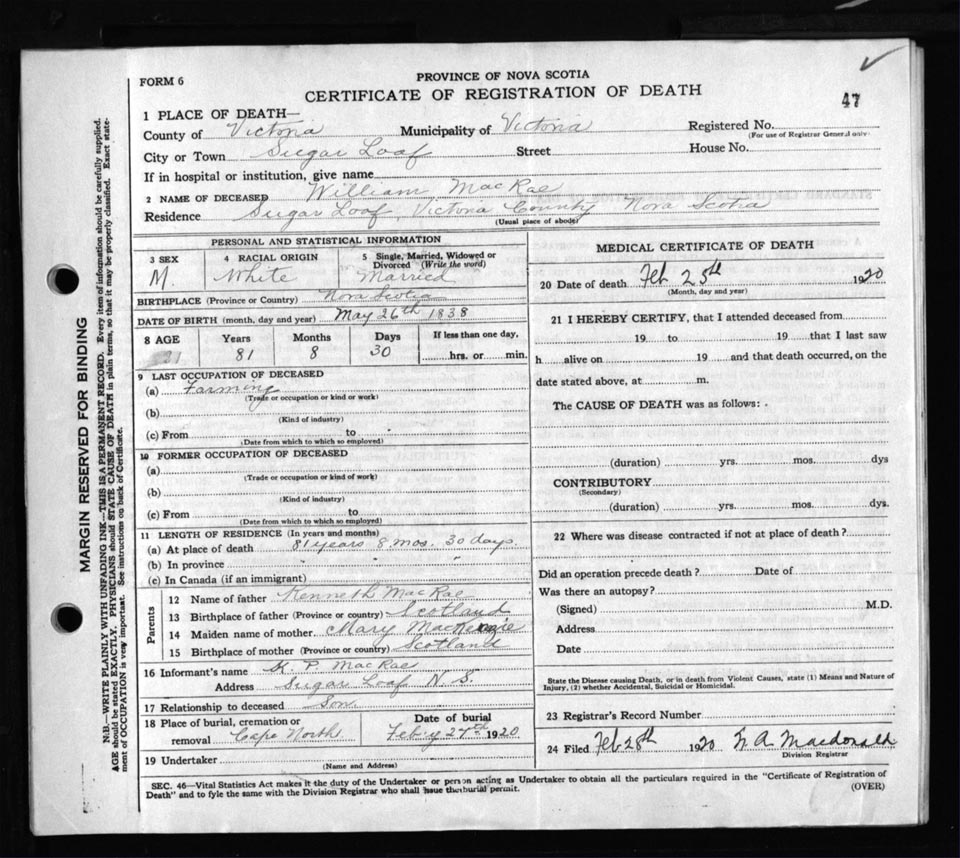 FORM 6
PROVINCE OF NOVA SCOTIA
CERTIFICATE OF REGISTRATION OF DEATH
47
1 PLACE OF DEATH—
County of Victoria Municipality of Victoria Registered No.
(For use of Registrar General only)
City or Town Sugar Loaf Street House No.
If in hospital or institution, give name
2 NAME OF DECEASED William MacRae
Residence Sugar Loaf, Victoria County Nova Scotia
(Usual place of abode)
PERSONAL AND STATISTICAL INFORMATION
3 SEX 4 RACIAL ORIGIN 5 Single, Married, Widowed or Divorced (Write the word)
M White Married
BIRTHPLACE (Province or Country) Nova Scotia
DATE OF BIRTH (month, day and year) May 26th 1838
8 AGE Years Months Days If less than one day,
81 8 30 hrs. or min.
9 LAST OCCUPATION OF DECEASED
(a) Farming
(Trade or occupation or kind or work)
(b)
(Kind of industry)
(c) From to
(Date from which to which so employed)
10 FORMER OCCUPATION OF DECEASED
(a)
(Trade or occupation or kind of work)
(b)
(Kind of industry)
(c) From to
(Date from which to which so employed)
11 LENGTH OF RESIDENCE (In years and months)
(a) At place of death 81 years 8 mos. 30 days.
(b) In province " " "
(c) In Canada (if an immigrant)
Parents
12 Name of father Kenneth MacRae
13 Birthplace of father (Province or country) Scotland
14 Maiden name of mother Mary MacKenzie
15 Birthplace of mother (Province or country) Scotland
16 Informant's name K. P. MacRae
Address Sugar Loaf N S.
17 Relationship to deceased Son
18 Place of burial, cremation or removal Cape North Date of burial Feb'y 27th 1920
19 Undertaker
(Name and Address)
MEDICAL CERTIFICATE OF DEATH
20 Date of death Feb 25th 1920
(Month, day and year)
21 I HEREBY CERTIFY, that I attended deceased from
19 to 19 that I last saw
h alive on 19 and that death occurred, on the
date stated above, at m.
The CAUSE OF DEATH was as follows:
(duration) yrs. mos. dys
CONTRIBUTORY
(Secondary)
(duration) yrs. mos. dys.
22 Where was disease contracted if not at place of death?
Did an operation precede death? Date of
Was there an autopsy?
(Signed) M.D.
Address
Date
State the Disease causing Death, or in death from Violent Causes, state (1) Means and Nature of
Injury, (2) whether Accidental, Suicidal or Homicidal.
23 Registrar's Record Number
24 Filed Feb 28th 1920 Macdonald
Division Registrar
SEC. 46—Vital Statistics Act makes it the duty of the Undertaker or person acting as Undertaker to obtain all the particulars required in the "Certificate of Registration of
Death" and to fyle the same with the Division Registrar who shall issue the burial permit.
(OVER)
MARGIN RESERVED FOR BINDING
N.B.—WRITE PLAINLY WITH UNFADING INK—THIS IS A PERMANENT RECORD. Every item of information should be carefully supplied.
AGE should be stated EXACTLY. PHYSICIANS should STATE CAUSE OF DEATH in plain terms, so that it may be properly classified. Exact state-
ment of OCCUPATION is very important. See instructions on back of Certificate.